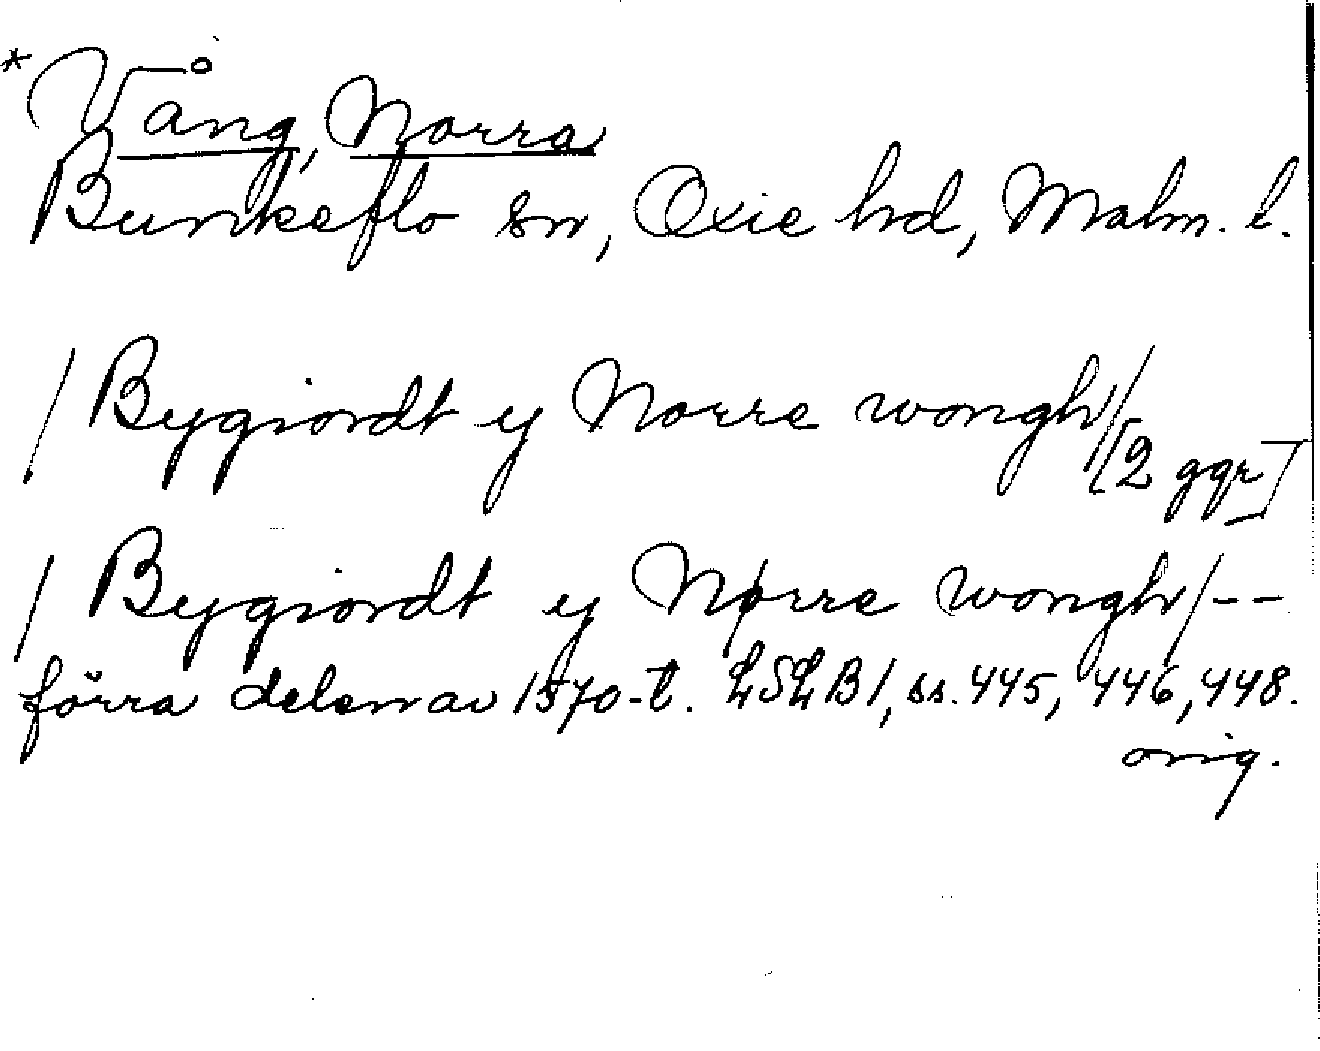 *Vång, Norra
Bunkeflo sn, Oxie hd, Malm. l.
/ Bygiordt y Norre wongh/
[2 ggr]
/ Bygiordt y Nørre wongh/--
förra delen av 1570-t. LSLB1, ss. 445, 446, 448.
orig.